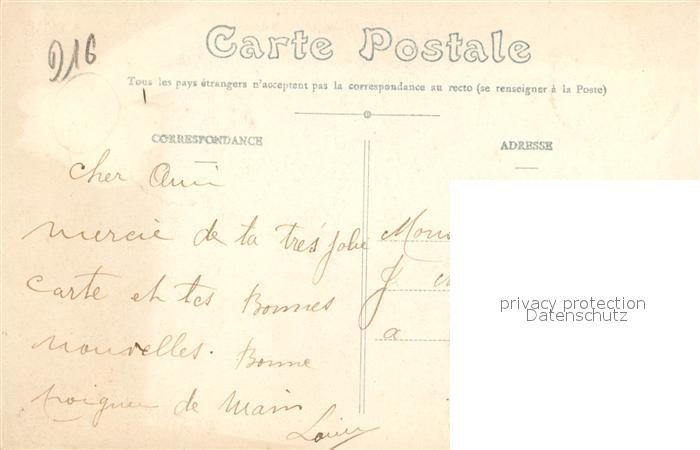 916
Carte Postale
Tous les pays étrangers n'acceptent pas la correspondance au recto (se renseigner à la Poste)
CORRESPONDANCE
ADRESSE
Cher Ami
mercie de ta très jolie
carte et tes Bonnes
nouvelles. Bonne
poignee de Main
Louis
J
a
privacy protection
Datenschutz